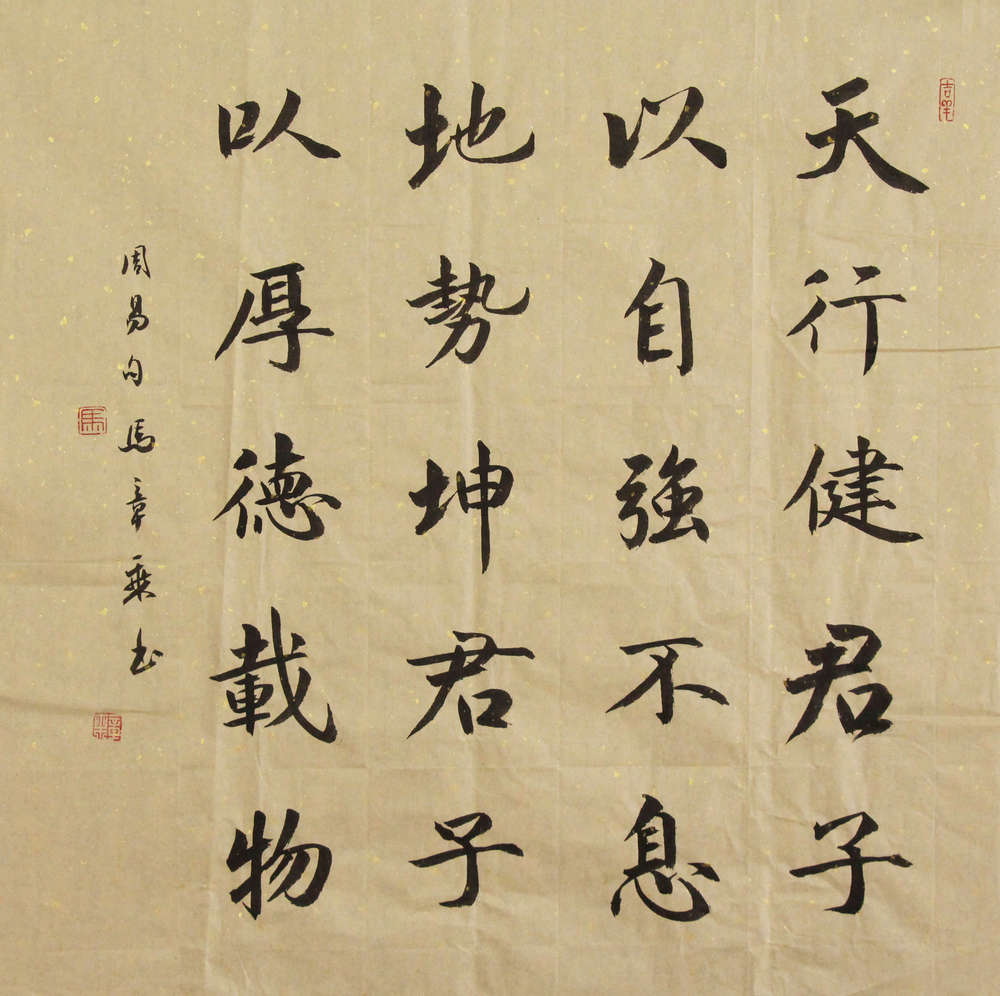 天行健君子
以自強不息
地勢坤君子
以厚德載物
周易句馬章乘书
吉羊
馬